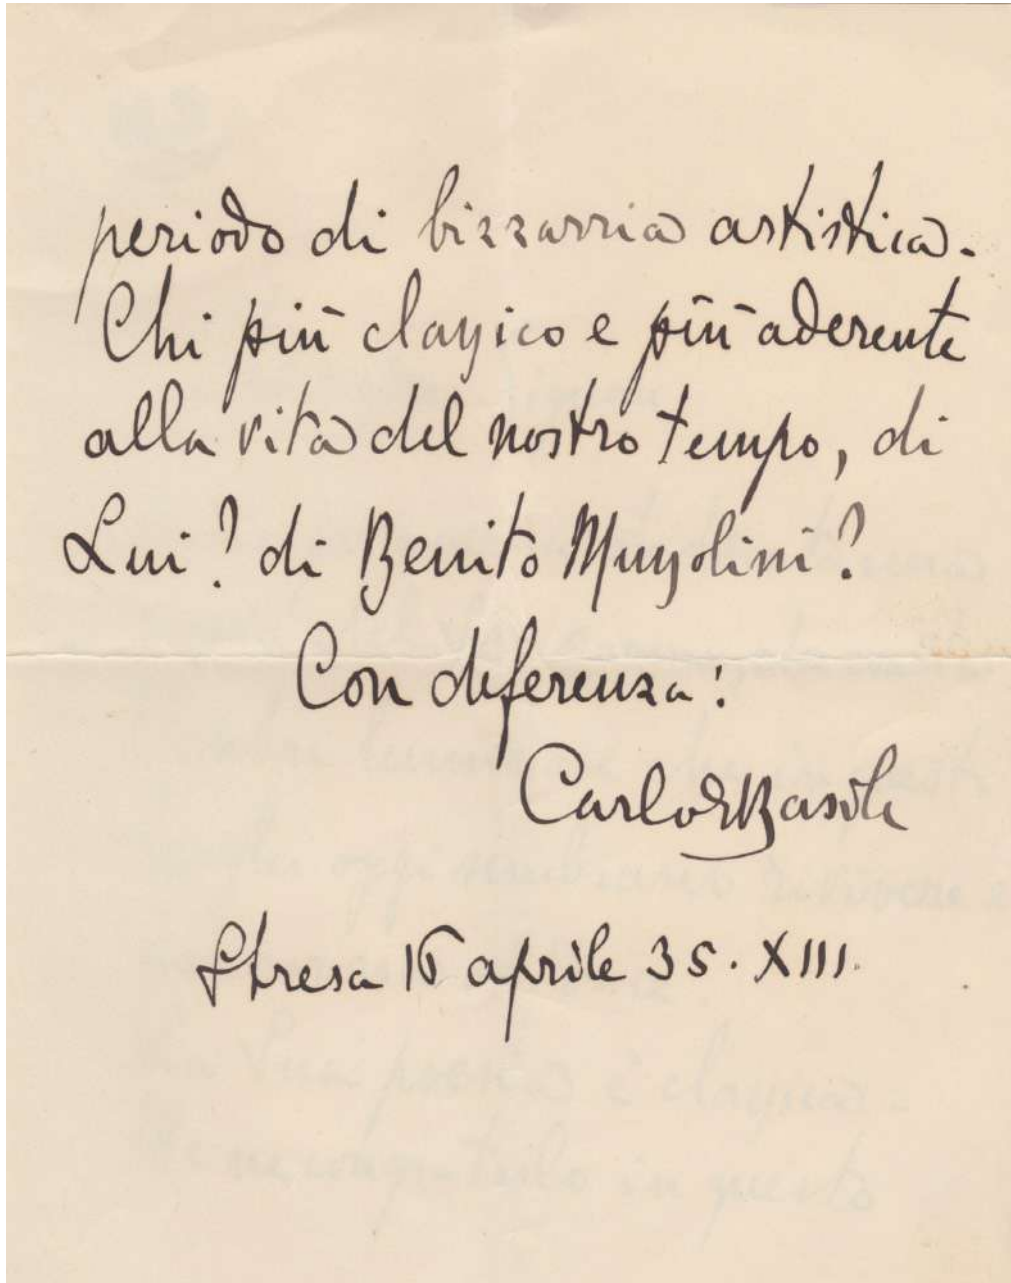 periodo di bizzarria artistica.
Chi più classico e più aderente
alla vita del nostro tempo, di
Lui? di Benito Mussolini?
Con deferenza:
Carlo Basile
Stresa 16 aprile 35. XIII.